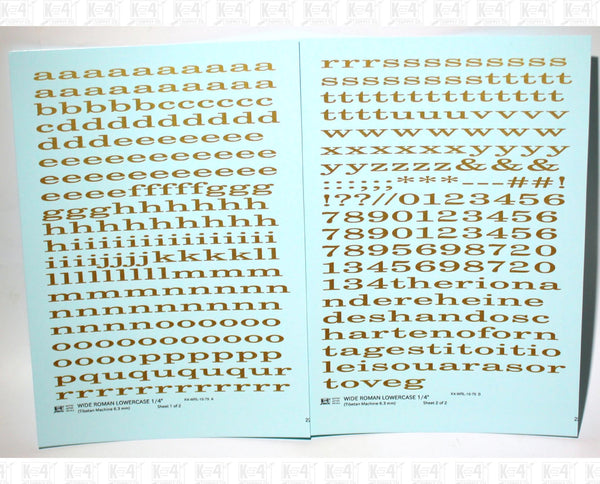 aaaaaaaaaa
aaaaaaaaaa
bbbbbbcccccc
cdddddddddd
dddeeeeeeee
eeeeeeeeeee
eeeeeeeeeee
eeeefffffggg
ggghhhhhhhh
hhhhhhhhhhh
hiiiiiiiiiiiiiii
iiiiijjjjkkkkll
lllllllllmmm
mmmnnnnnnn
nnnnnnnnnn
nnnnoooooo
ooooooooooo
oooopppppp
pququququr
rrrrrrrrrrrrr
WIDE ROMAN LOWERCASE 1/4"
(Tibetan Machine 6.3 mm)
K4-WRL-10-75 A
Sheet 1 of 2
rrrsssssssss
sssssssssttttt
tttttttttttttt
ttttttuuuvvvv
vwwwwwwww
xxxxxxyyyy
yyzzzz&&&&
::::;;;;***---##!
!???//0123456
7890123456
7890123456
7895698720
1345698720
134theriona
ndereheine
deshandosc
hartenoforn
tagestitoitio
leisouarasor
toveg
WIDE ROMAN LOWERCASE 1/4"
(Tibetan Machine 6.3 mm)
K4-WRL-10-75 B
Sheet 2 of 2